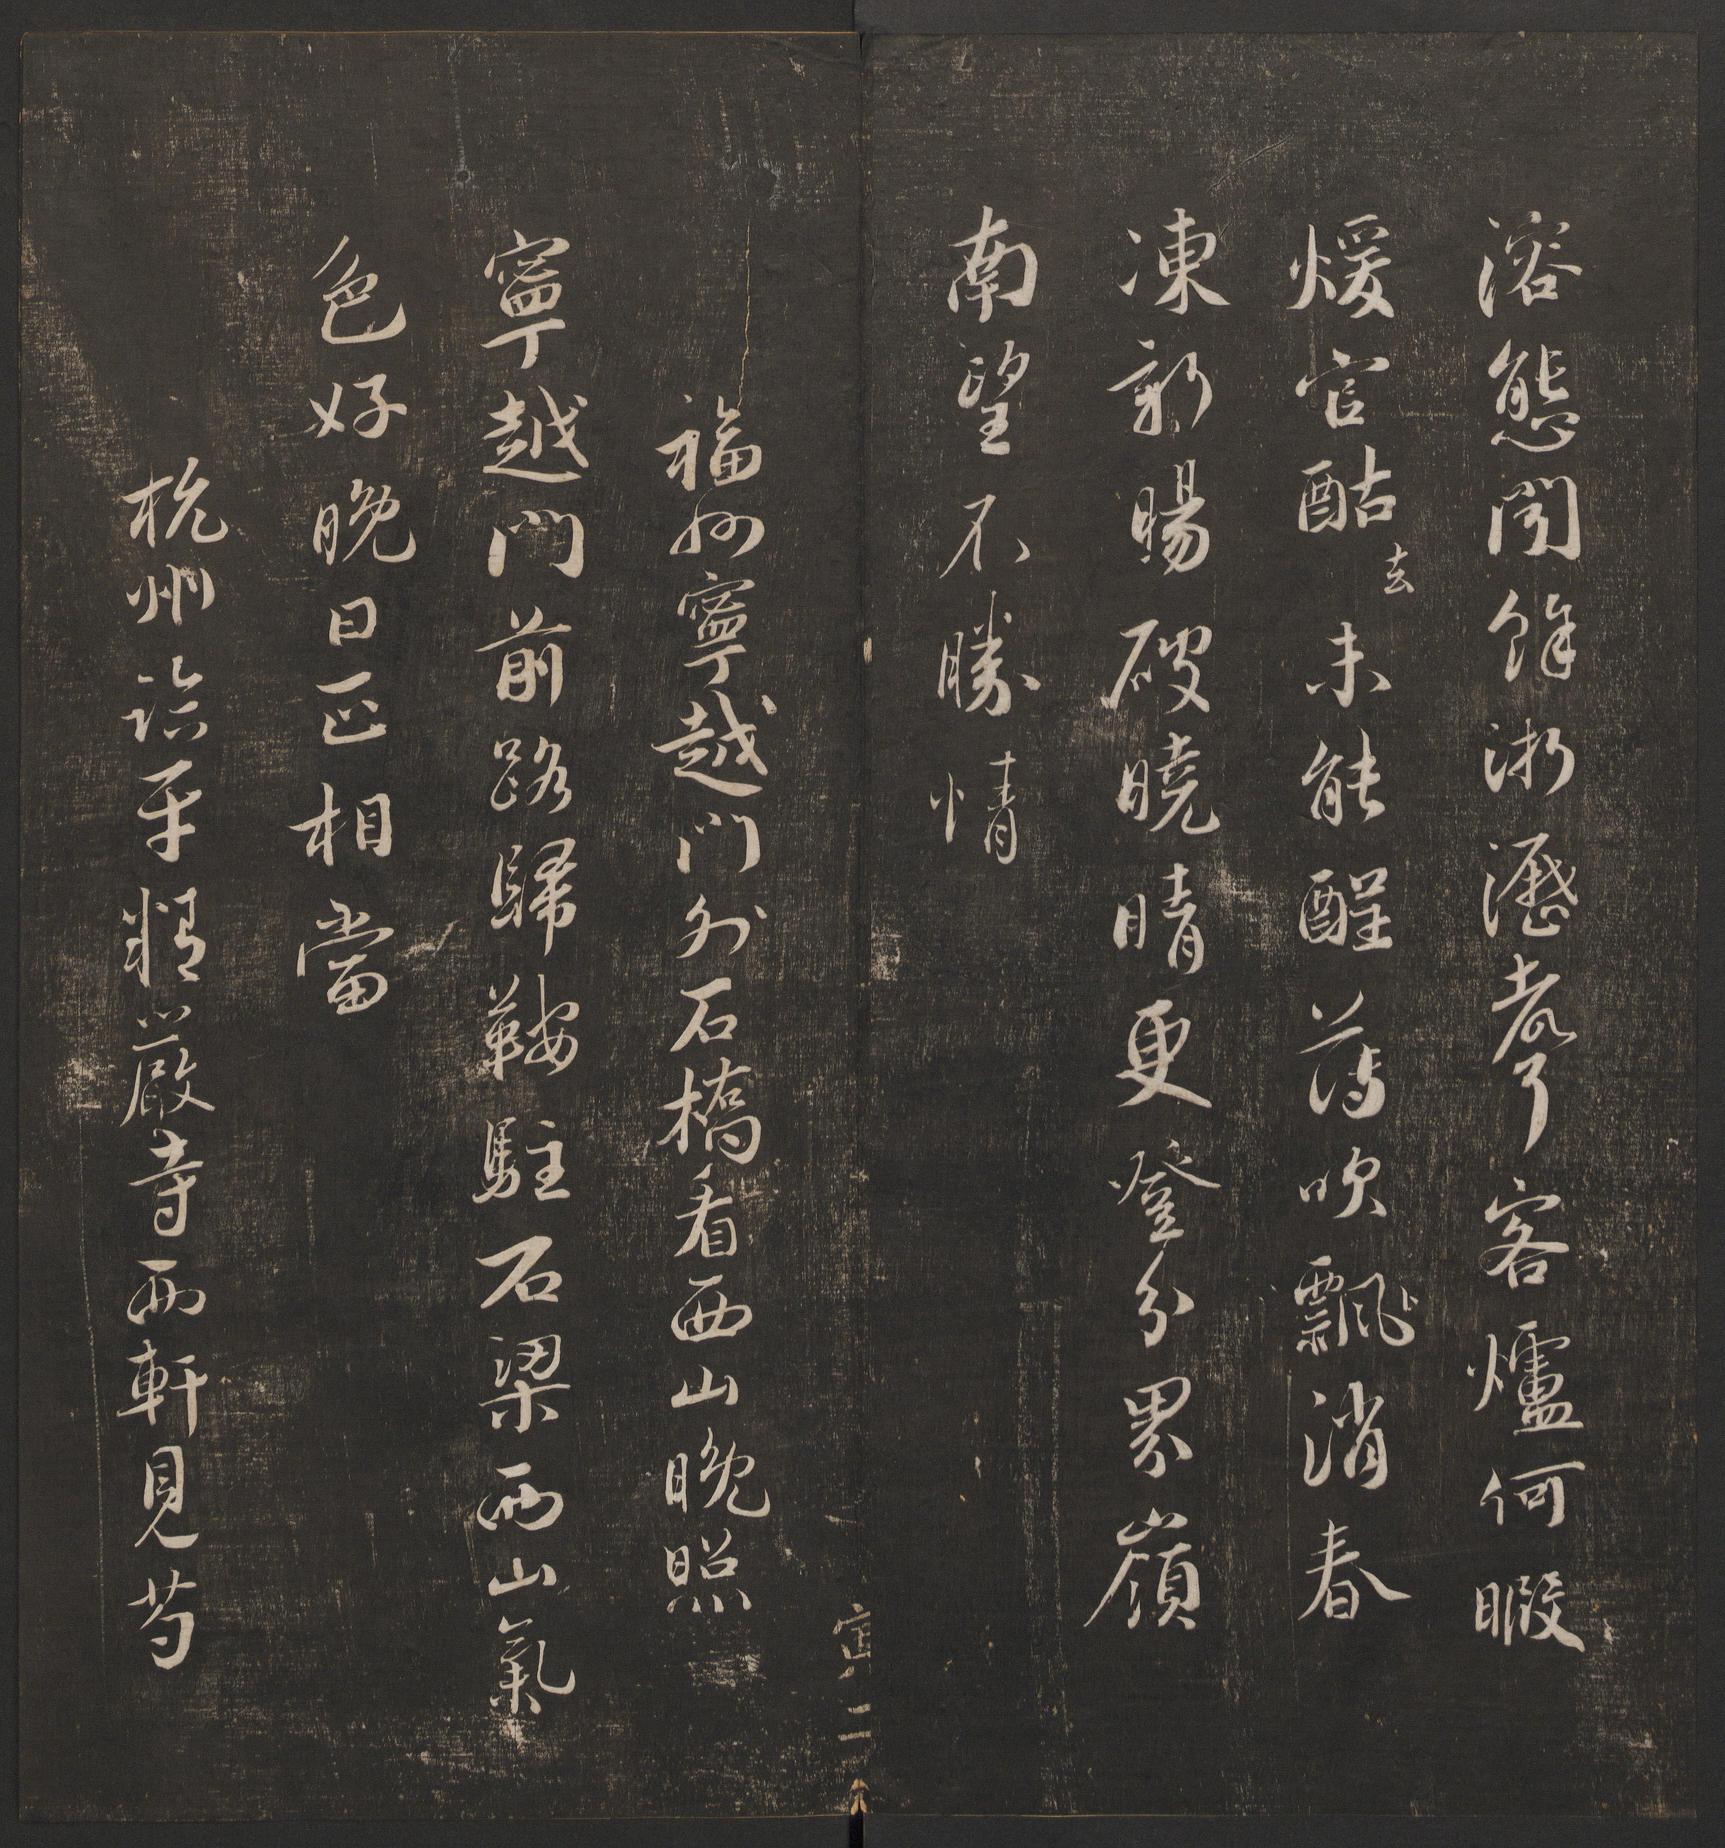 溶態聞餘淅瀝聲客爐何暇
煖官酤去未能醒薄吹飄消春
凍新暘破曉晴更登分界嶺
南望不勝情
寅二
福州寧越門外石橋看西山晚照
寧越門前路歸鞍駐石梁西山氣
色好晚日正相當
杭州臨平精嚴寺西軒見芍